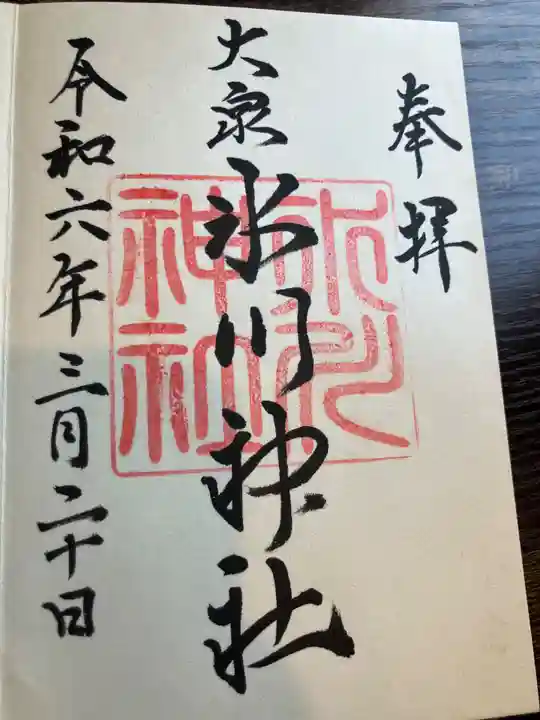 奉拝
大泉
氷川神社
氷川
神社
令和六年三月二十日